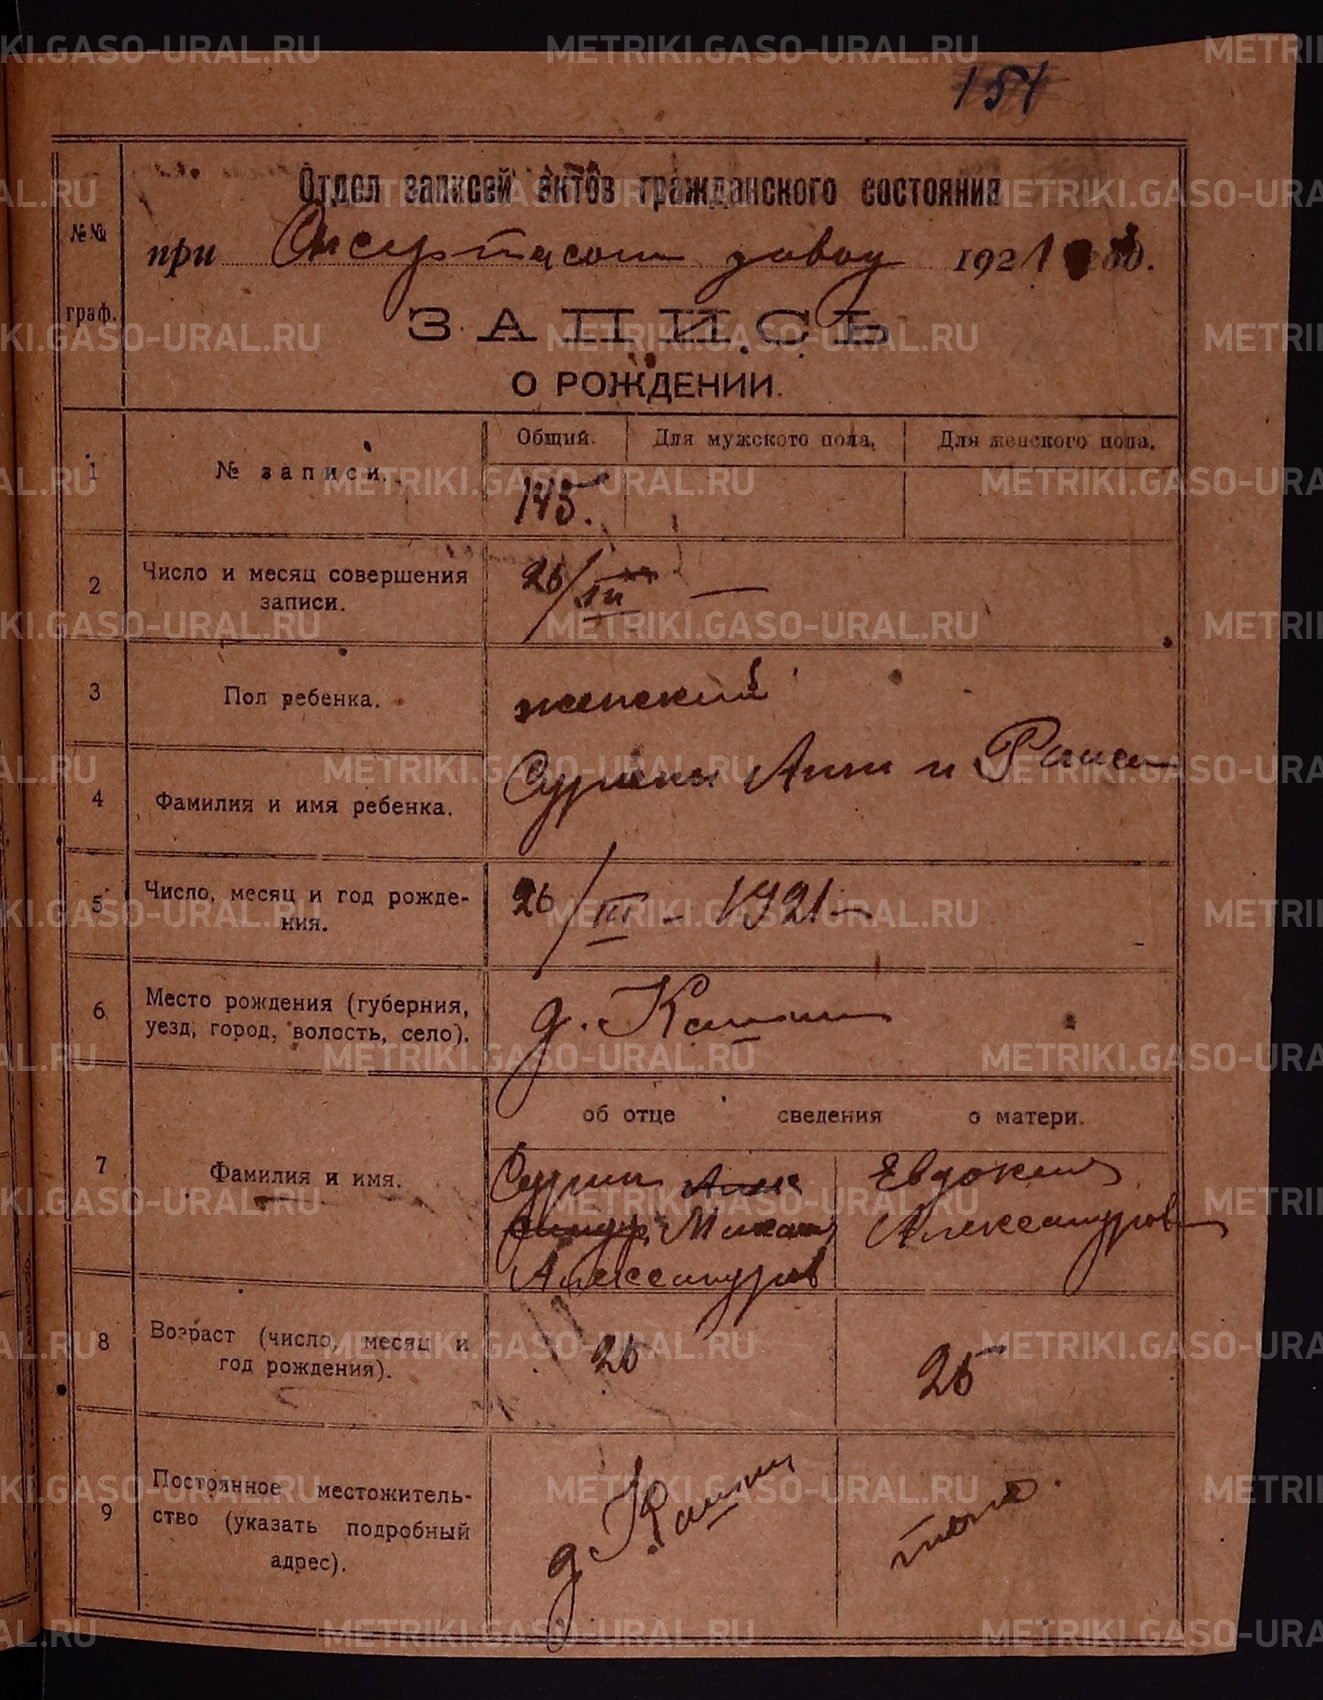 151
Отдел записей актов гражданского состояния
№№ граф.
при завод 1921
ЗАПИСЬ
О РОЖДЕНИИ.
1
№ записи.
Общий.
Для мужского пола.
Для женского пола.
145.
2
Число и месяц совершения
записи.
26/III —
3
Пол ребенка.
женский
4
Фамилия и имя ребенка.
Сурины Анна и Раиса
5
Число, месяц и год рожде-
ния.
26/III - 1921 -
6
Место рождения (губерния,
уезд, город, волость, село).
д.
об отце сведения о матери.
7
Фамилия и имя.
Сурин Алек
сандр Михаил
Александров
Евдокия
Александров
8
Возраст (число, месяц и
год рождения).
25
25
9
Постоянное местожитель-
ство (указать подробный
адрес).
д.
тоже.
METRIKI.GASO-URAL.RU